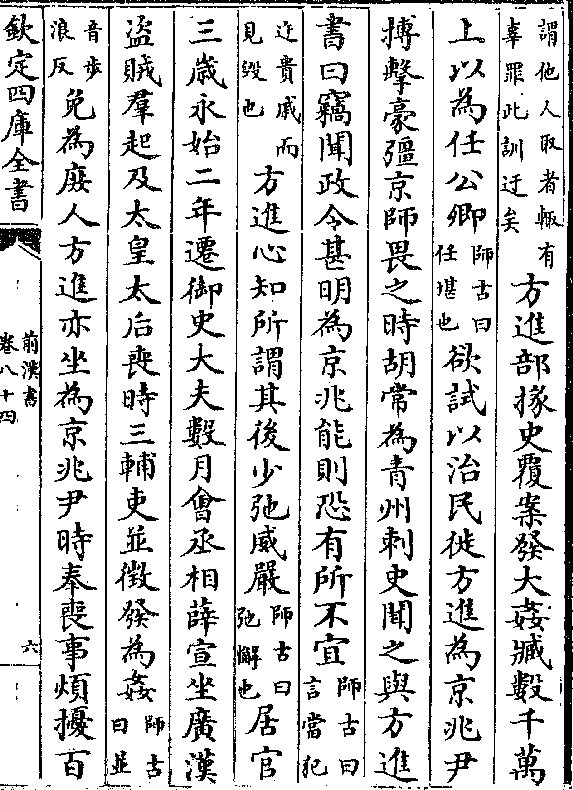 謂他人取者輙有
辜罪此訓迂矣
方進部掾史覆案發大姦贓數千萬
上以為任公卿
師古曰
任堪也
欲試以治民徙方進為京兆尹
搏擊豪彊京師畏之時胡常為青州刺史聞之與方進
書曰竊聞政令甚明為京兆能則恐有所不宜
師古曰
言當犯
迕貴戚而
見毀也
方進心知所謂其後少弛威嚴
師古曰
弛懈也
居官
三歲永始二年遷御史大夫數月會丞相薛宣坐廣漢
盜賊羣起及太皇太后喪時三輔吏並徵發為姦
師古
曰並
音步
浪反
免為庻人方進亦坐為京兆尹時奉喪事煩擾百
欽定四庫全書
前漢書
卷八十四
六